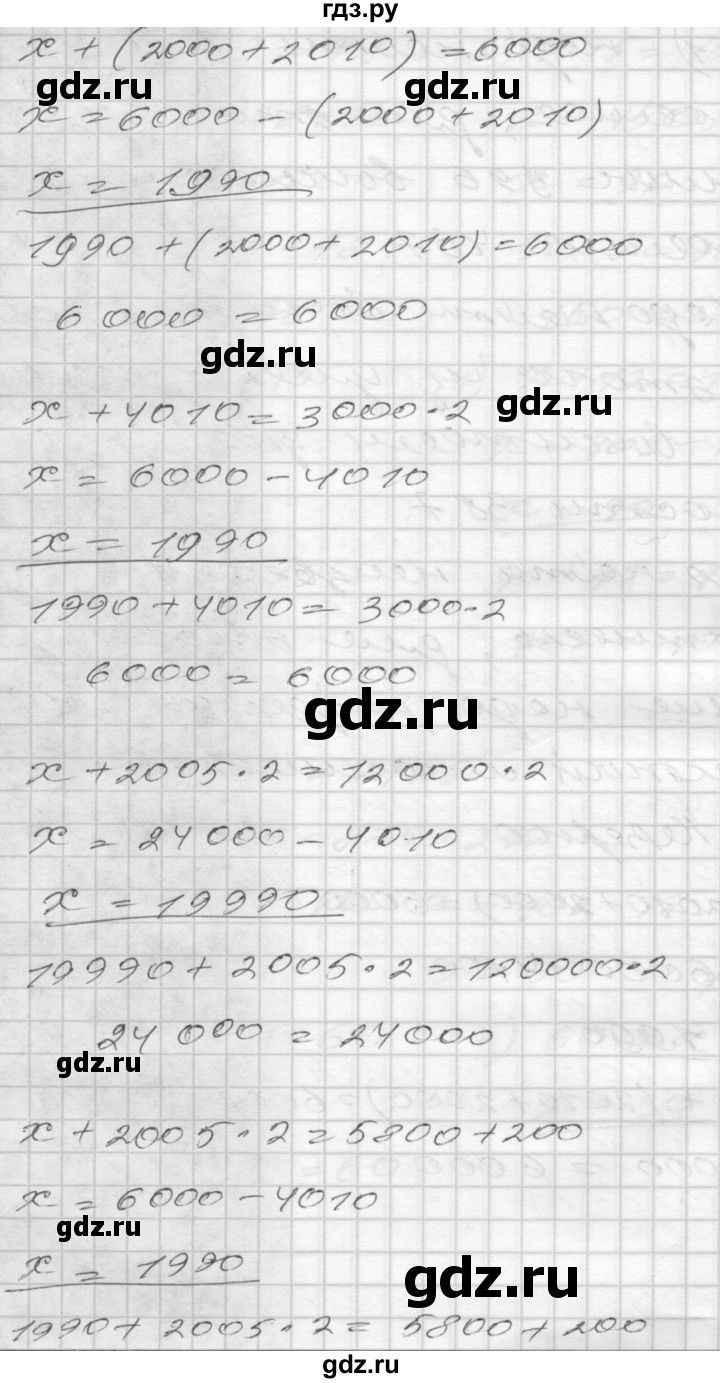 гдз.ру
x + (2000 + 2010) = 6000
gdz.ru gdz.ru
x = 6000 - (2000 + 2010)
x = 1990
1990 + (2000 + 2010) = 6000
6000 = 6000
gdz.ru
gdz.ru
x + 4010 = 3000 · 2
x = 6000 - 4010
x = 1990
1990 + 4010 = 3000 · 2
6000 = 6000
gdz.ru
x + 2005 · 2 = 12000 · 2
x = 24000 - 4010
x = 19990
19990 + 2005 · 2 = 120000 · 2
24000 = 24000
gdz.ru
x + 2005 · 2 = 5800 + 200
x = 6000 - 4010
gdz.ru
x = 1990
gdz.ru
1990 + 2005 · 2 = 5800 + 200
gdz.ru